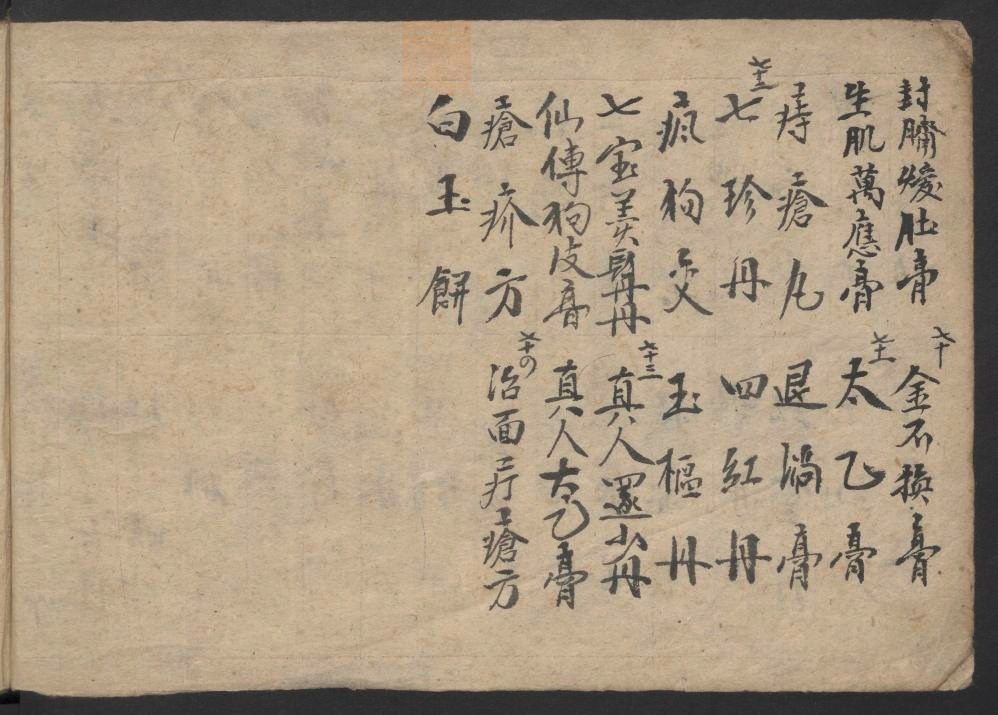 封臍煖肚膏 六十 金不換膏
生肌萬應膏 六十一 太乙膏
痔瘡丸 退消膏
六十二 七珍丹 四紅丹
瘋狗灸 玉樞丹
七宝美髯丹 六十三 真人還少丹
仙傳狗皮膏 真人太乙膏
瘡疥方 六十の 治面疔瘡方
白玉餅